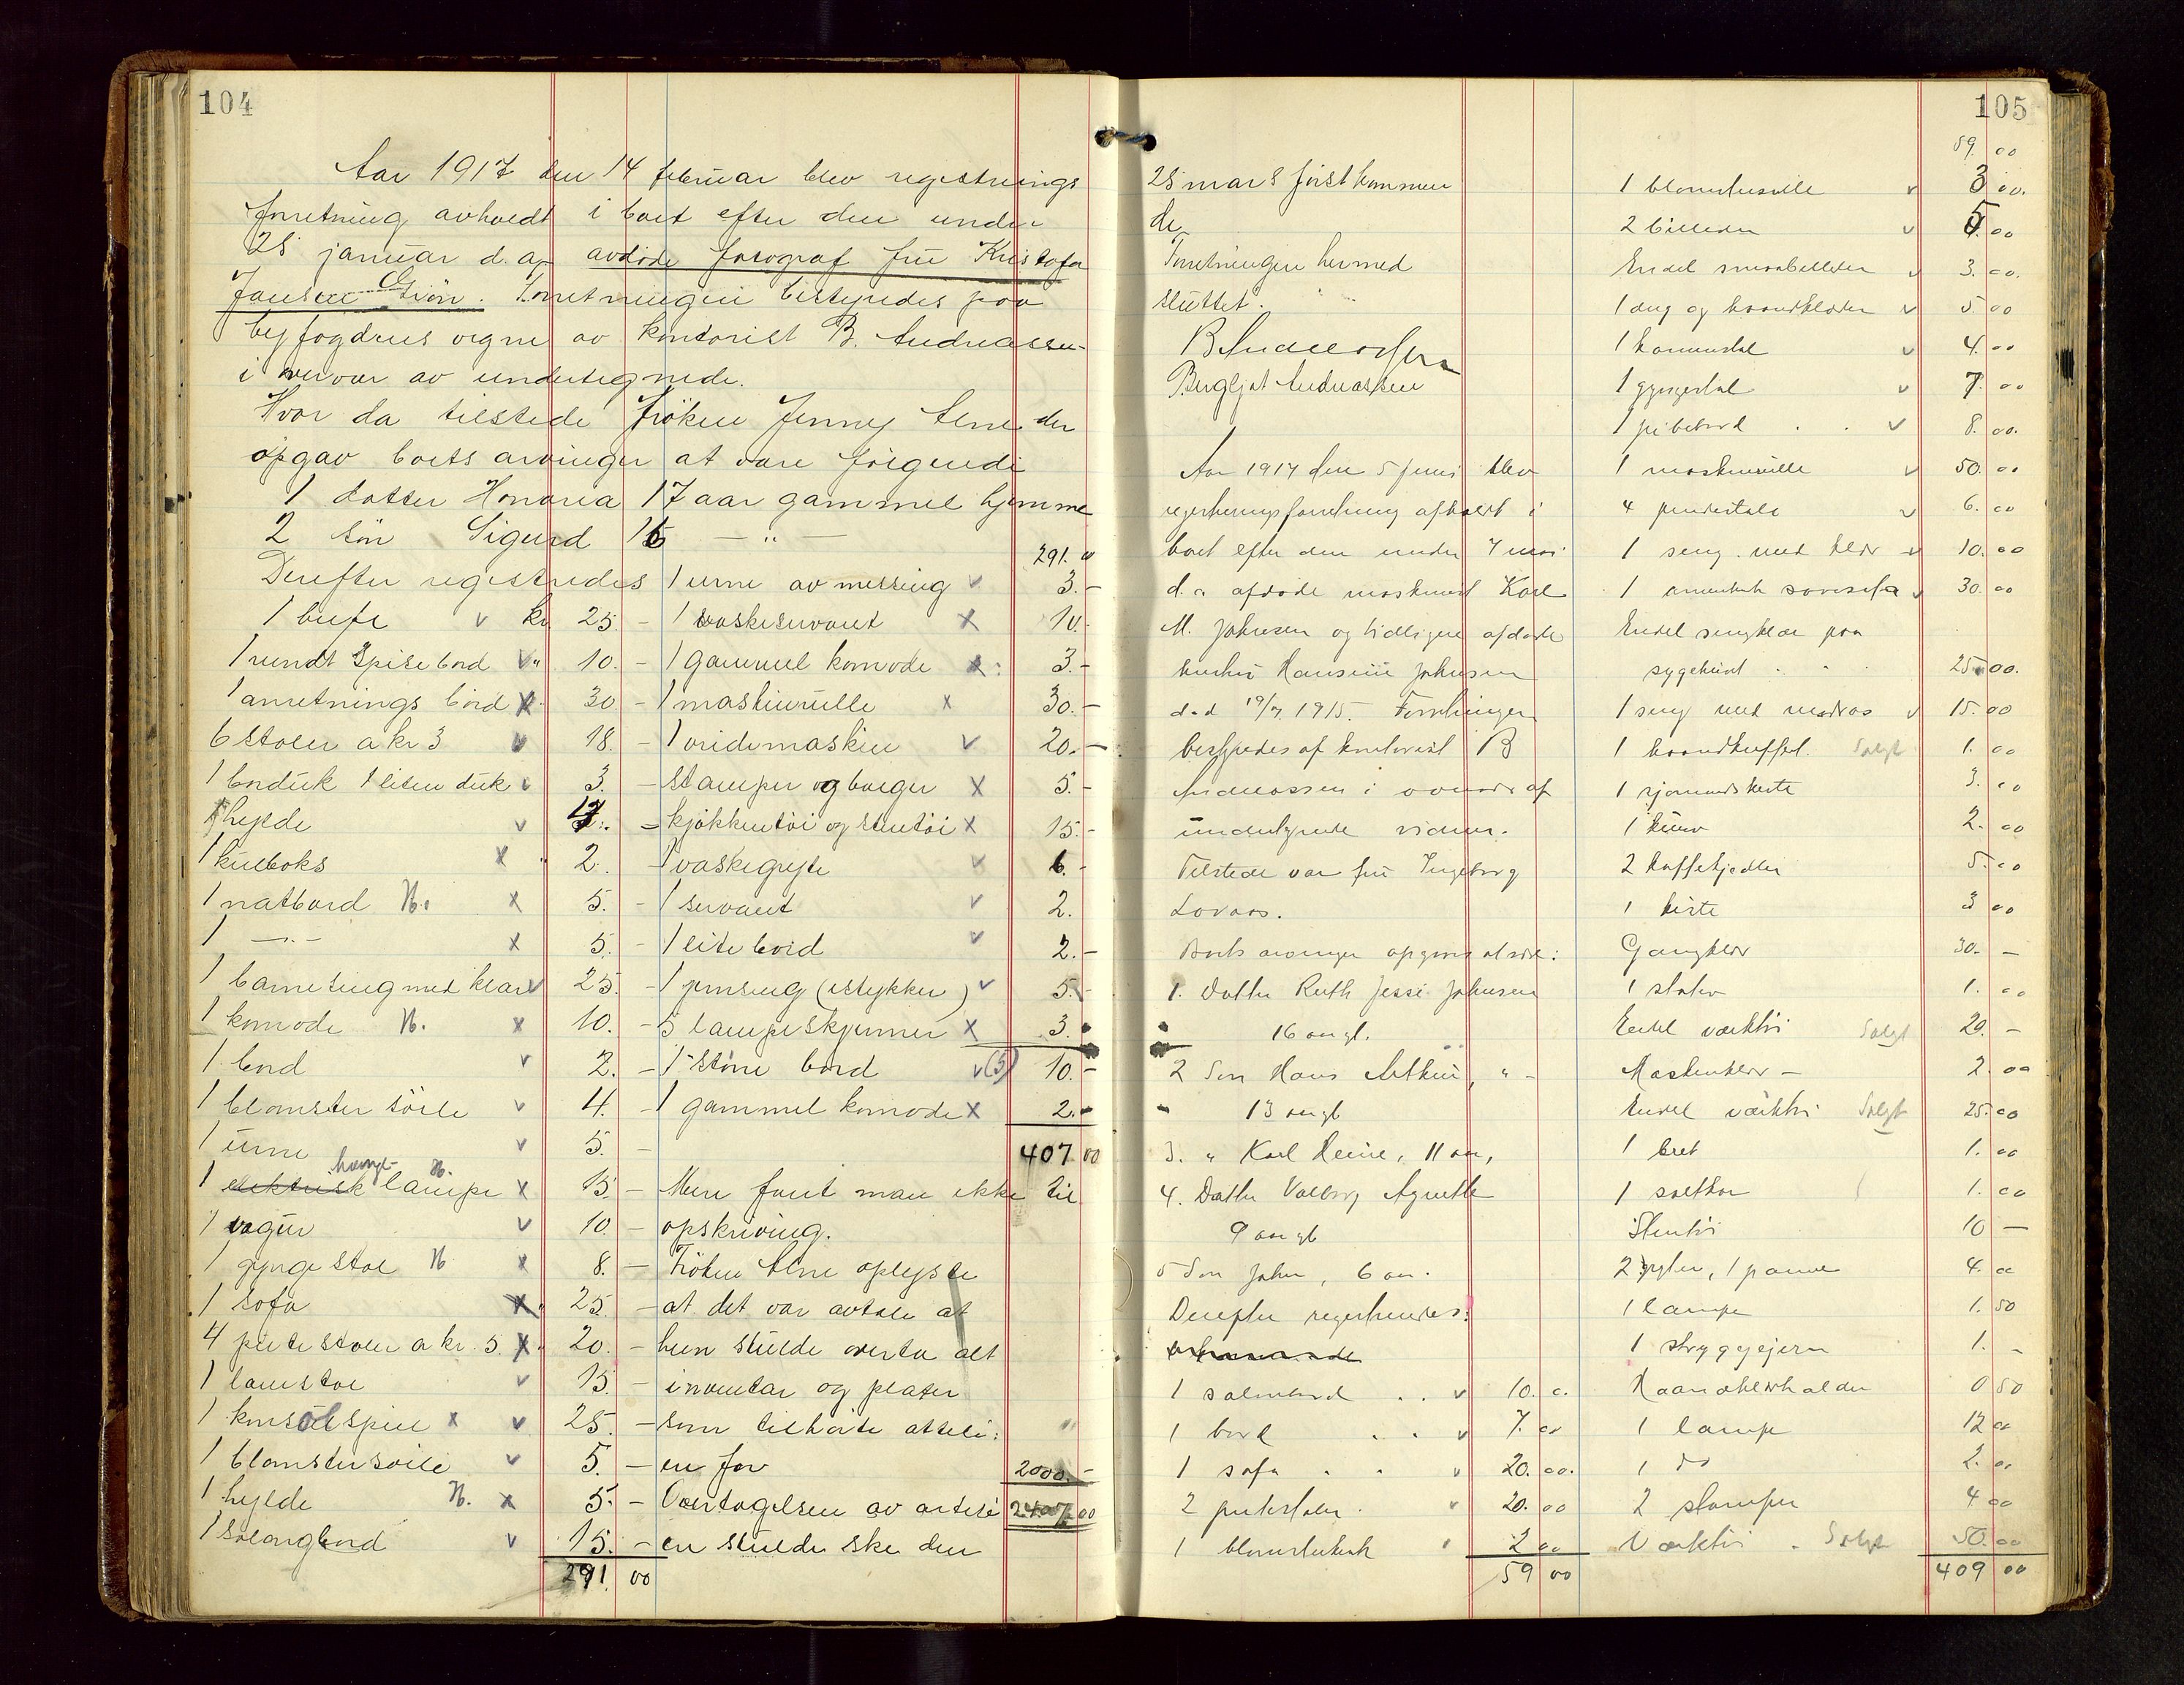 104
Aar 1917 den 14 februar blev registrerings
forretning avholdt i boet efter den under
28 januar d.a. avdöde fotograf fru Kristofa
Jansen Grön. Forretningen bestyredes paa
byfogdens vegne av kontorist B. Andreassen
i nærvær av undertegnede.
Hvor da tilstede fröken Jenny Arne der
opgav boets arvinger at være fölgende
1 datter Honoria 17 aar gammel hjemme
2 sön Sigurd 16 — " —
Derefter registredes
1 bufe v kr 25. -
1 rundt Spisebord v " 10. -
1 anretnings bord x 30 -
6 stoler a kr 3 v 18. -
1 bordduk 1 liten duk v 3. -
1 hylde v
1 kulboks x " 2. -
1 natbord N. x 5. -
1 — " — x 5. -
1 barneseng med klær v 25. -
1 komode N. x 10. -
1 bord v 2. -
1 blomster söile v 4. -
1 urne v 5. -
1 elektrisk hænge N. lampe x 15. -
1 vægur v 10. -
1 gyngestol N x 8. -
1 sofa x 25. -
4 pute stoler a kr. 5. x 20. -
1 lænestol v 15. -
1 konsolspeil x v 25. -
1 blomstersöile v 5. -
1 hylde N. x 5. -
1 salongbord v 15. -
291. 00
291. 00
1 urne av messing v 3. -
1 vaskeservant x 10. -
1 gammel komode x 3. -
1 maskinrulle x 30. -
1 vridemaskin v 20. -
stamper og balger x 5. -
kjökkentöi og stentöi x 15. -
1 vaskegryte v 6. -
1 servant v 2.
1 lite bord v 2. -
1 jernseng (istykker) v 5. -
5 lampeskjermer x 3.
1 större bord v (5) 10. -
1 gammel komode x 2. -
407 00
Mere fant man ikke til
opskriving.
Fröken Arne oplyste
at det var avtale at
hun skulde overta alt
inventar og plater
som tilhörte atteli-
en for 2000. -
Overtagelsen av atteli 2407 00
en skulde ske den
105
28 mars förstkommen
de
Forretningen hermed
sluttet.
B Andreassen
Bergljot Andreassen
Aar 1917 den 5 juni blev
registreringsforretning afholdt i
boet efter den under 7 mai
d.a. afdöde maskinist Karl
M. Johnsen og tidligere afdöde
hustru Hansine Johnsen
död 19/7 1915. Forretningen
bestyredes af kontorist B
Andreassen i overvær af
undertegnede vidner.
Tilstede var fru Ingeborg
Lovaas.
Boets arvinger opgives at være:
1. Datter Ruth Jessi Johnsen
16 aar gl.
2 Sön Hans Arthur, " -
13 aar gl
3. " Karl Heine, 11 aar,
4. Datter Valborg Agnethe
9 aar gl
5 Sön John, 6 aar.
Derefter registreredes:
1 salonbord . . v 10. 00
1 bord . . v 7. 00
1 sofa . . v 20. 00.
2 puterstoler . v 20. 00
1 blomsterkrak 2 00
59 00
59. 00
1 blomstersöile v 3 00.
2 billeder v 5. 00
Endel smaabilleder v 3. 00.
1 dug og haandklæder v 5. 00
1 kommode v 4. 00
1 gyngestol v 7. 00
1 pibebord . . v 8. 00.
1 maskinrulle v 50. 00
4 pindestole v 6. 00
1 seng med klær v 10. 00
1 amerikansk sovesofa v 30. 00
Endel sengklær paa
sygehuset . . 25 00.
1 seng med madras v 15. 00
1 haandkuffert. Solgt 1. 00
1 sjömandskiste 3. 00
1 kurv 2. 00
2 kaffekjedler 5. 00
1 kiste 3 00
Gangklær 30. —
1 stativ 1. 00
Endel værktöi Solgt 20. —
Maskinklær — 2. 00
Endel værktöi Solgt 25. 00
1 bret 1. 00
1 saltkar 1. 00
Stentöi 10 —
2 gryter, 1 panne 4. 00
1 lampe 1. 50
1 strygejern 1. -
Haandklædeholder 0 50
1 lampe 12 00
1 do 2. 00
2 stamper 4 00
Værktöi . Solgt 50. 00
409 00